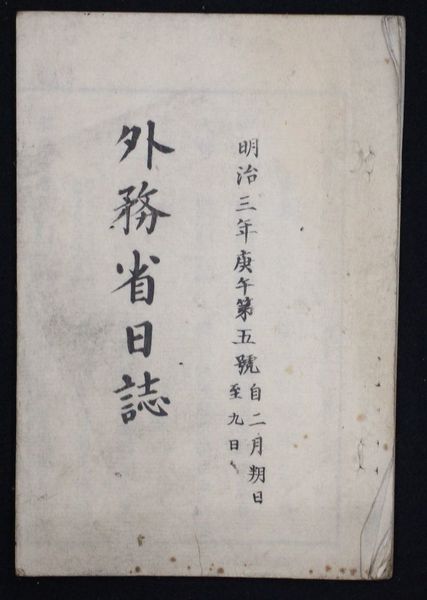 明治三年庚午第五號自二月朔日
至九日
外務省日誌